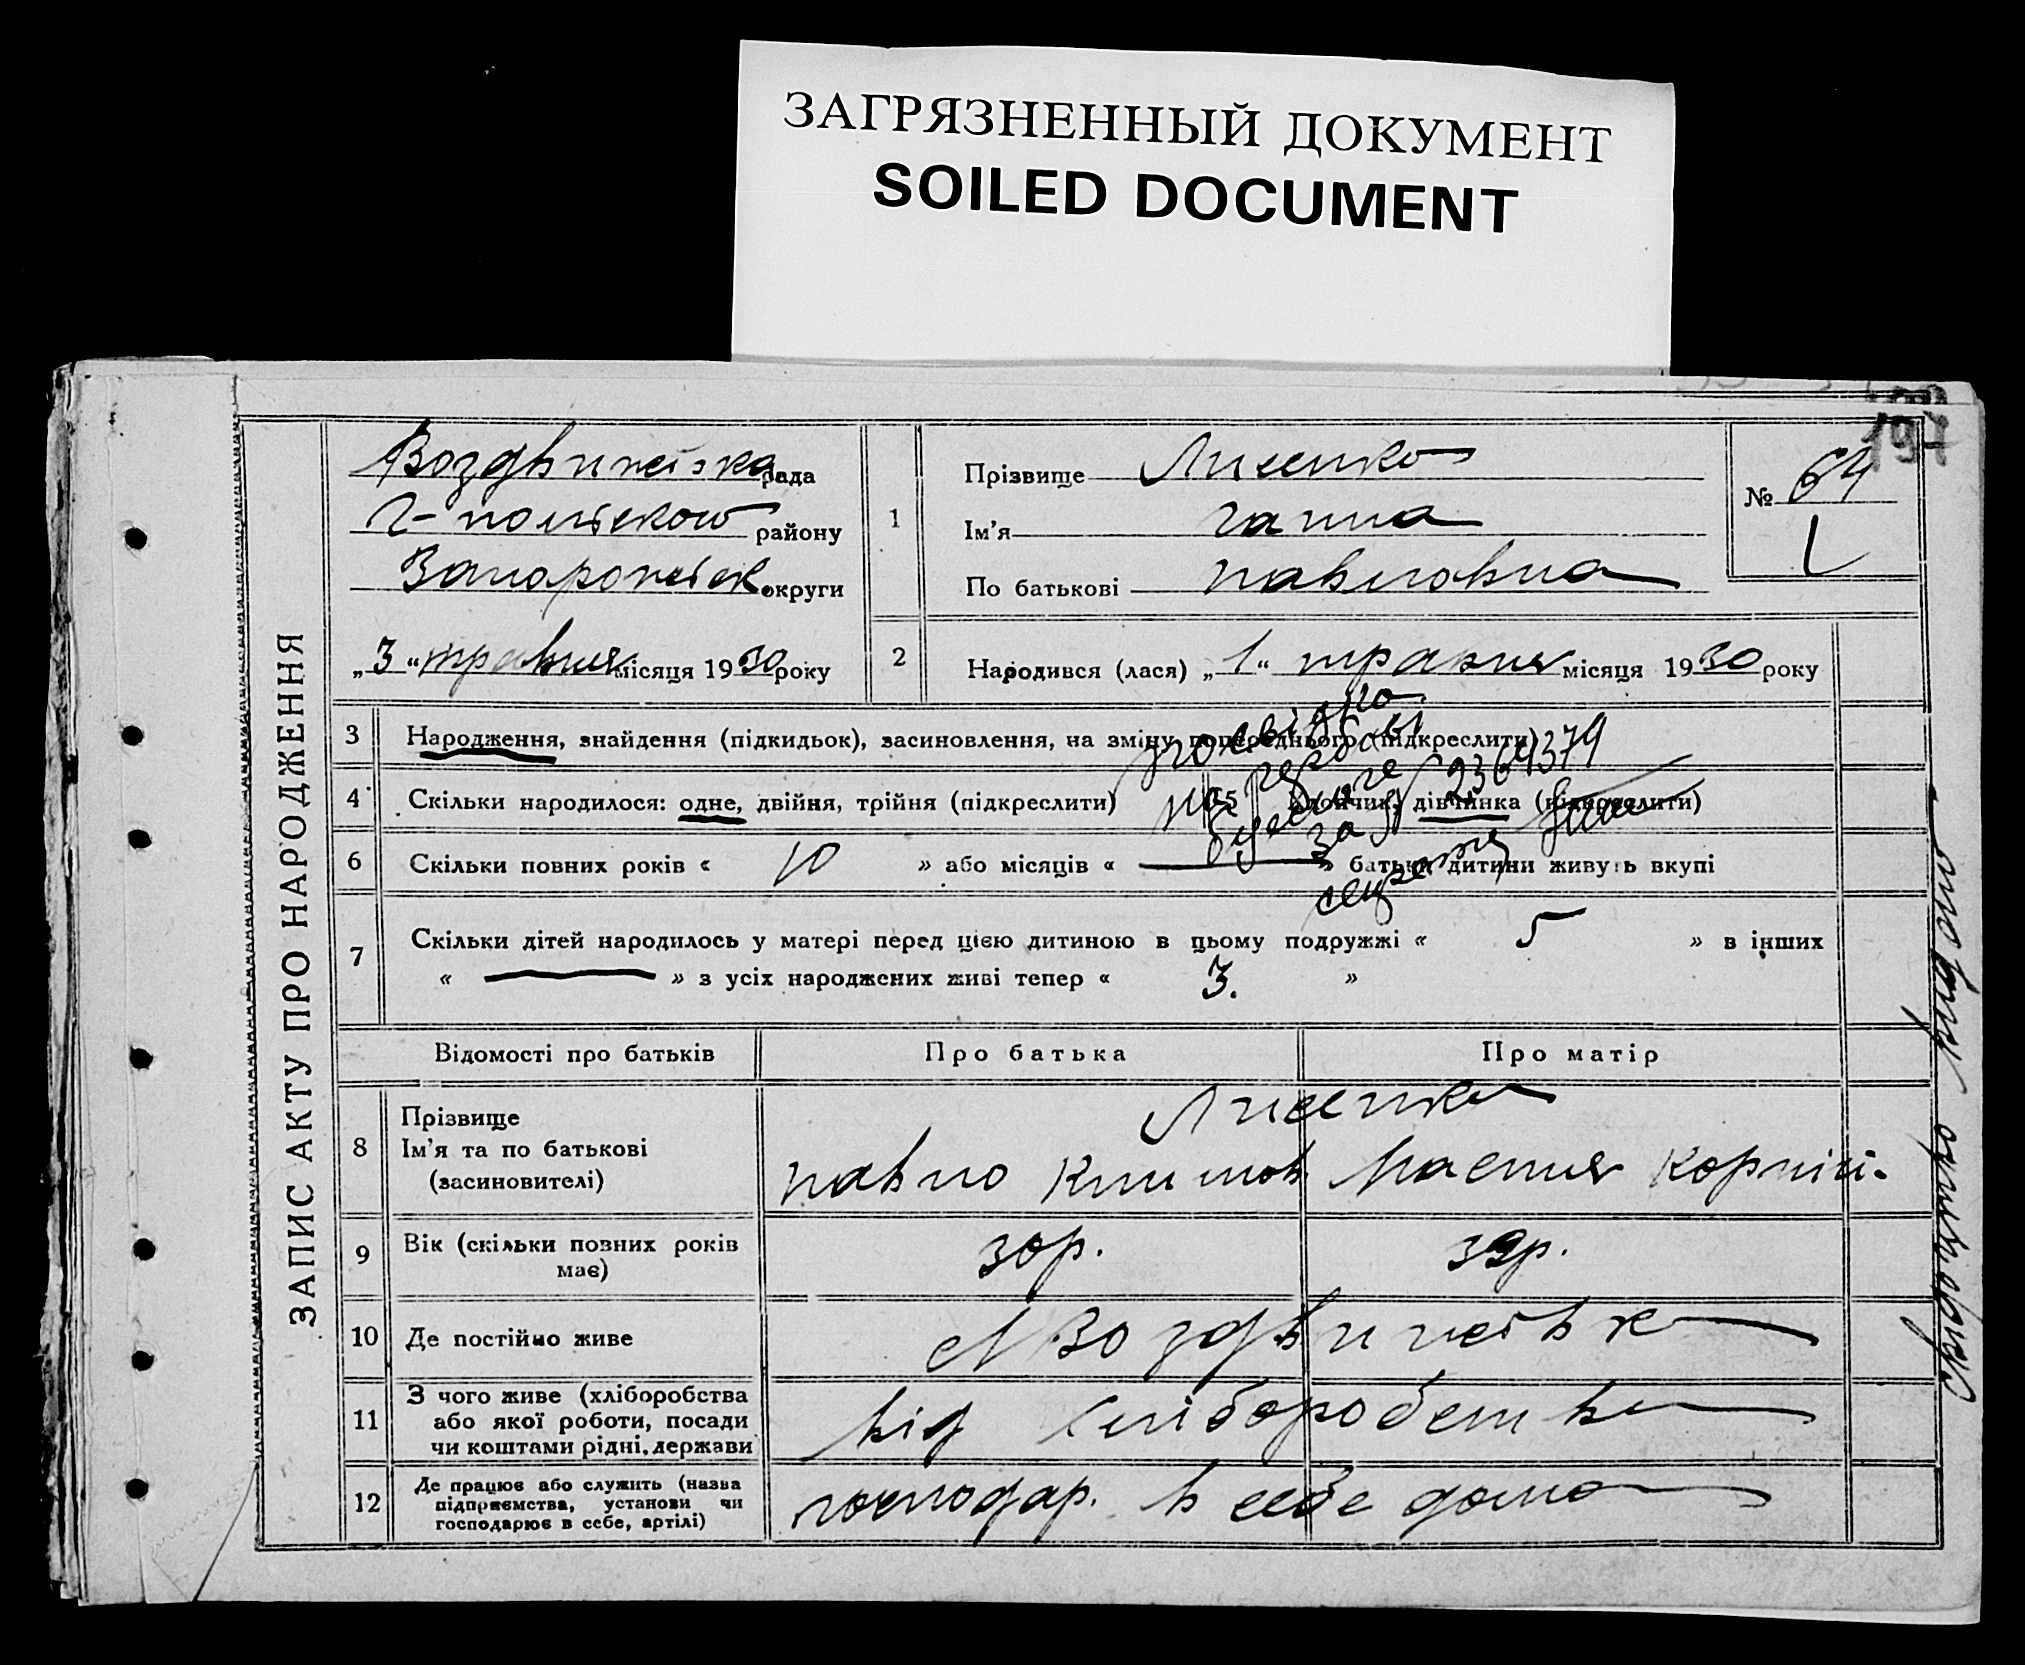 ЗАГРЯЗНЕННЫЙ ДОКУМЕНТ
SOILED DOCUMENT
197
ЗАПИС АКТУ ПРО НАРОДЖЕННЯ
Воздвижівська рада
Г-польськог району
Запоріжськ округи
„3“ травня місяця 1930 року
1
Прізвище Лисенко
Ім'я Ганна
По батькові Павловна
№ 64
2
Народився (лася) „1“ травня місяця 1930 року
3 Народження, знайдення (підкидьок), засиновлення, на зміну попереднього (підкреслити)
4 Скільки народилося: одне, двійня, трійня (підкреслити)
5 Хлопчик, дівчинка (підкреслити)
за № 2364379
6 Скільки повних років « 10 » або місяців « — » батьки дитини живуть вкупі
7 Скільки дітей народилось у матері перед цією дитиною в цьому подружжі « 5 » в інших
« — » з усіх народжених живі тепер « 3. »
Відомості про батьків Про батька Про матір
8 Прізвище
Ім'я та по батькові
(засиновителі)
Лисенко
Павло Климов Мастя Корній.
9 Вік (скільки повних років
має)
30р. 39р.
10 Де постійно живе
с Воздвижівка
11 З чого живе (хліборобства
або якої роботи, посади
чи коштами рідні, держави
від хліборобства
12 Де працює або служить (назва
підприємства, установи чи
господарює в себе, артілі)
господар. в себе дома
свідоцтво видано